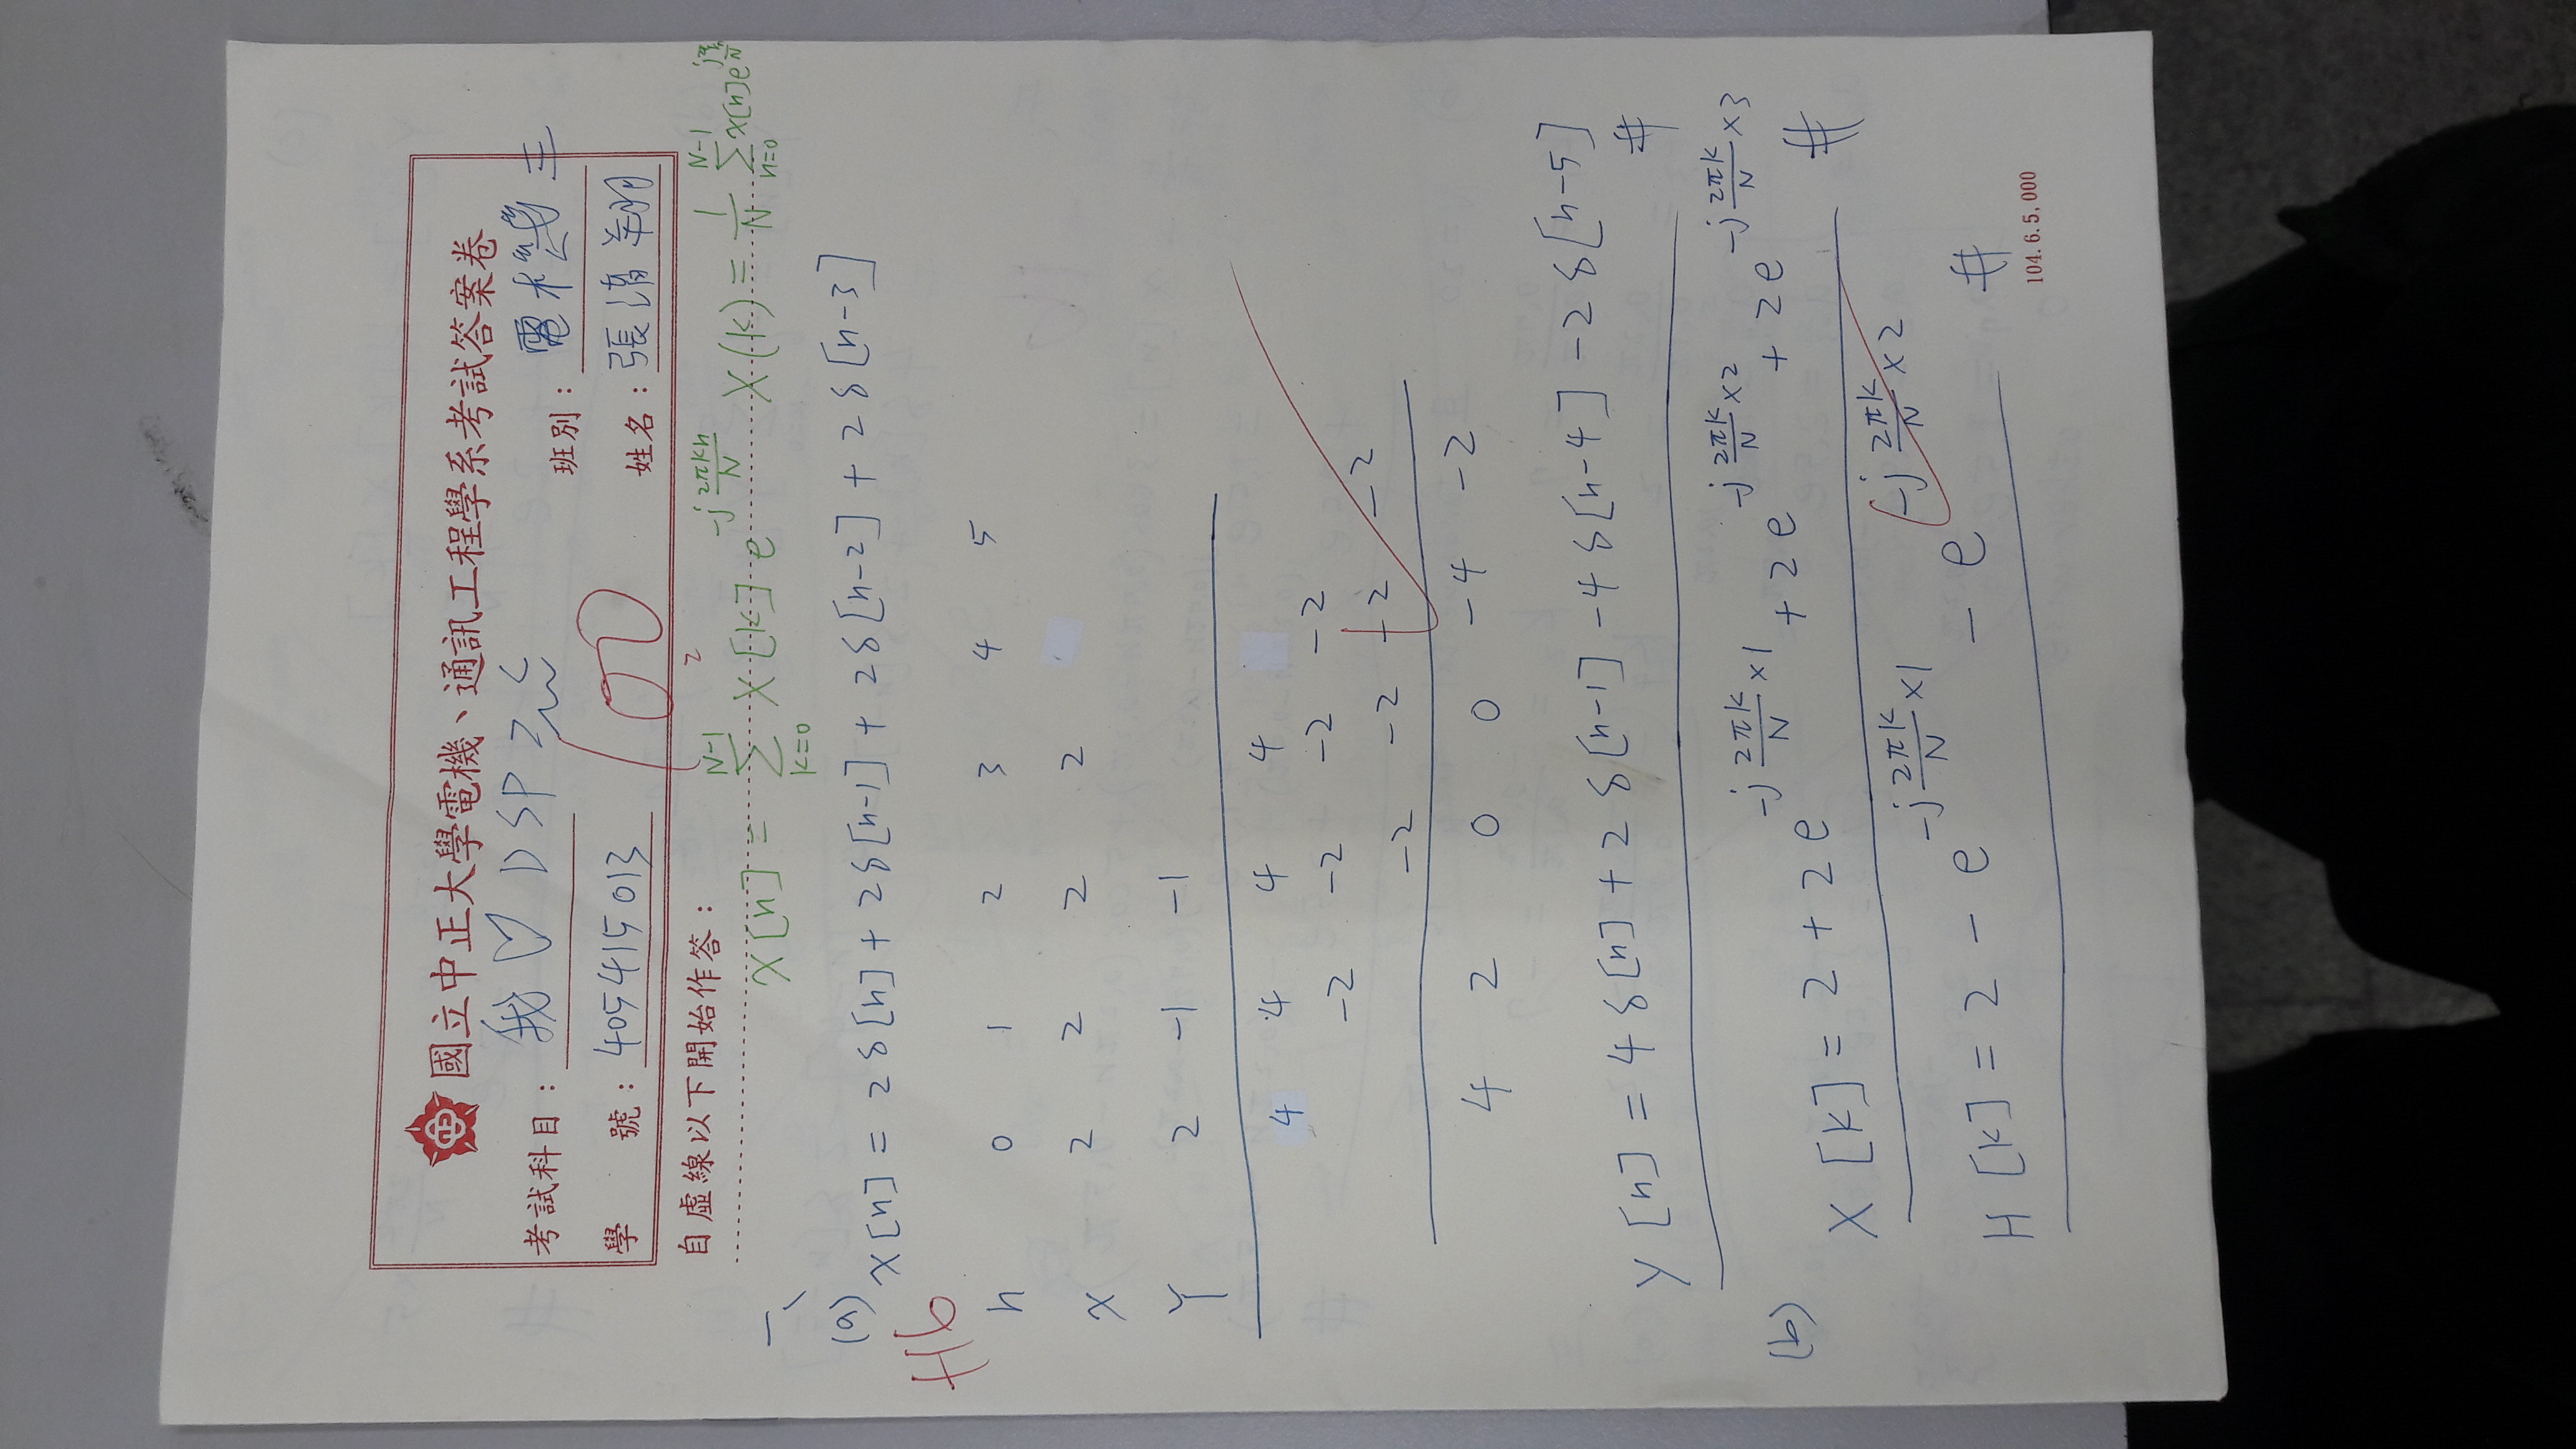 國立中正大學電機、通訊工程學系考試答案卷
考試科目: 我♡DSP
班別: 電機 三
學 號: 405415013
100
姓名: 張清翔
自虛線以下開始作答:
x[n] = \sum_{k=0}^{N-1} X[k] e^{-j\frac{2πkn}{N}} X(k) = \frac{1}{N} \sum_{n=0}^{N-1} x[n] e
一、
(a) x[n] = 2δ[n] + 2δ[n-1] + 2δ[n-2] + 2δ[n-3]
+16
n 0 1 2 3 4 5
x 2 2 2 2
Y 2 -1 -1
4 4 4 4
-2 -2 -2 -2
-2 -2 -2 -2
4 2 0 0 -4 -2
y[n] = 4δ[n] + 2δ[n-1] - 4δ[n-4] - 2δ[n-5] #
(b) X[k] = 2 + 2e^{-j\frac{2πk}{N}×1} + 2e^{-j\frac{2πk}{N}×2} + 2e^{-j\frac{2πk}{N}×3} #
H[k] = 2 - e^{-j\frac{2πk}{N}×1} - e^{-j\frac{2πk}{N}×2} #
104.6.5,000